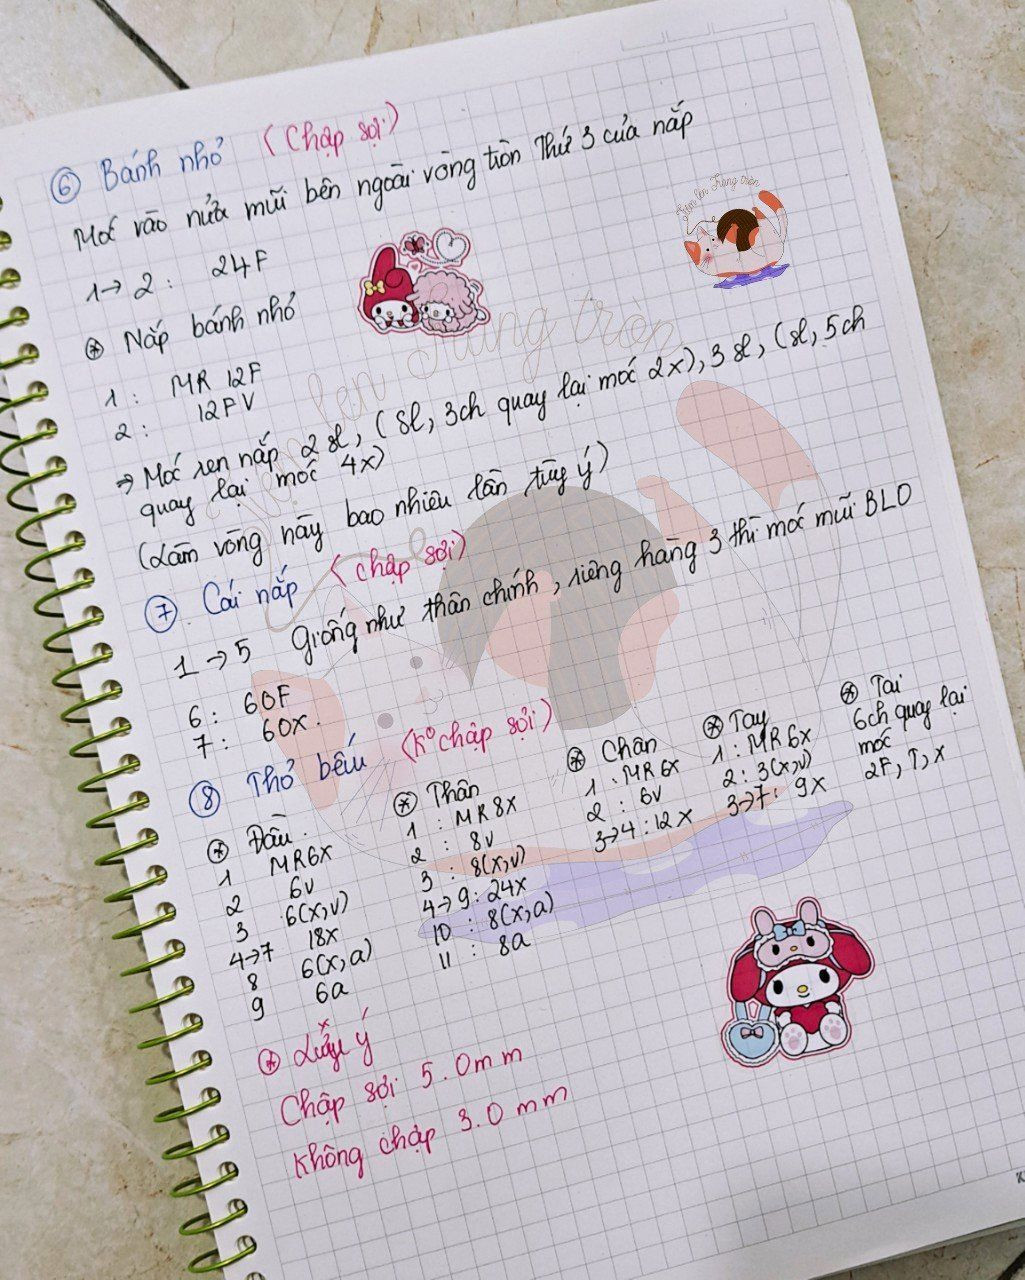 ⑥ Bánh nhỏ (Chập sợi)
Móc vào nửa mũi bên ngoài vòng tròn Thứ 3 của nắp
1→ 2 : 24F
⊛ Nắp bánh nhỏ
1 : MR 12F
2 : 12FV
→ Móc ren nắp 2 sl, ( sl, 3ch quay lại móc 2x), 3 sl, (sl, 5ch
quay lại móc 4x)
(Làm vòng này bao nhiêu lần tùy ý)
⑦ Cái nắp (chập sợi)
1 → 5 Giống như thân chính, riêng hàng 3 thì móc mũi BLO
6 : 60F
7 : 60x.
⑧ Thỏ bếu (Kº chập sợi)
⊛ Đầu.
1 MR6x
2 6v
3 6(x,v)
4→7 18x
8 6(x,a)
9 6a
⊛ Thân
1 : MR 8x
2 : 8v
3 : 8(x,v)
4→ 9 : 24x
10 : 8(x,a)
11 : 8a
⊛ Chân
1 : MR 6x
2 : 6v
3→4 : 12x
⊛ Tay
1 : MR 6x
2 : 3(x,v)
3→7 : 9x
⊛ Tai
6ch quay lại
móc
2F, T, x
⊛ Lưu ý
Chập sợi 5.0mm
Không chập 3.0mm
Tiệm len Trang tròn
Tiệm len Trang tròn